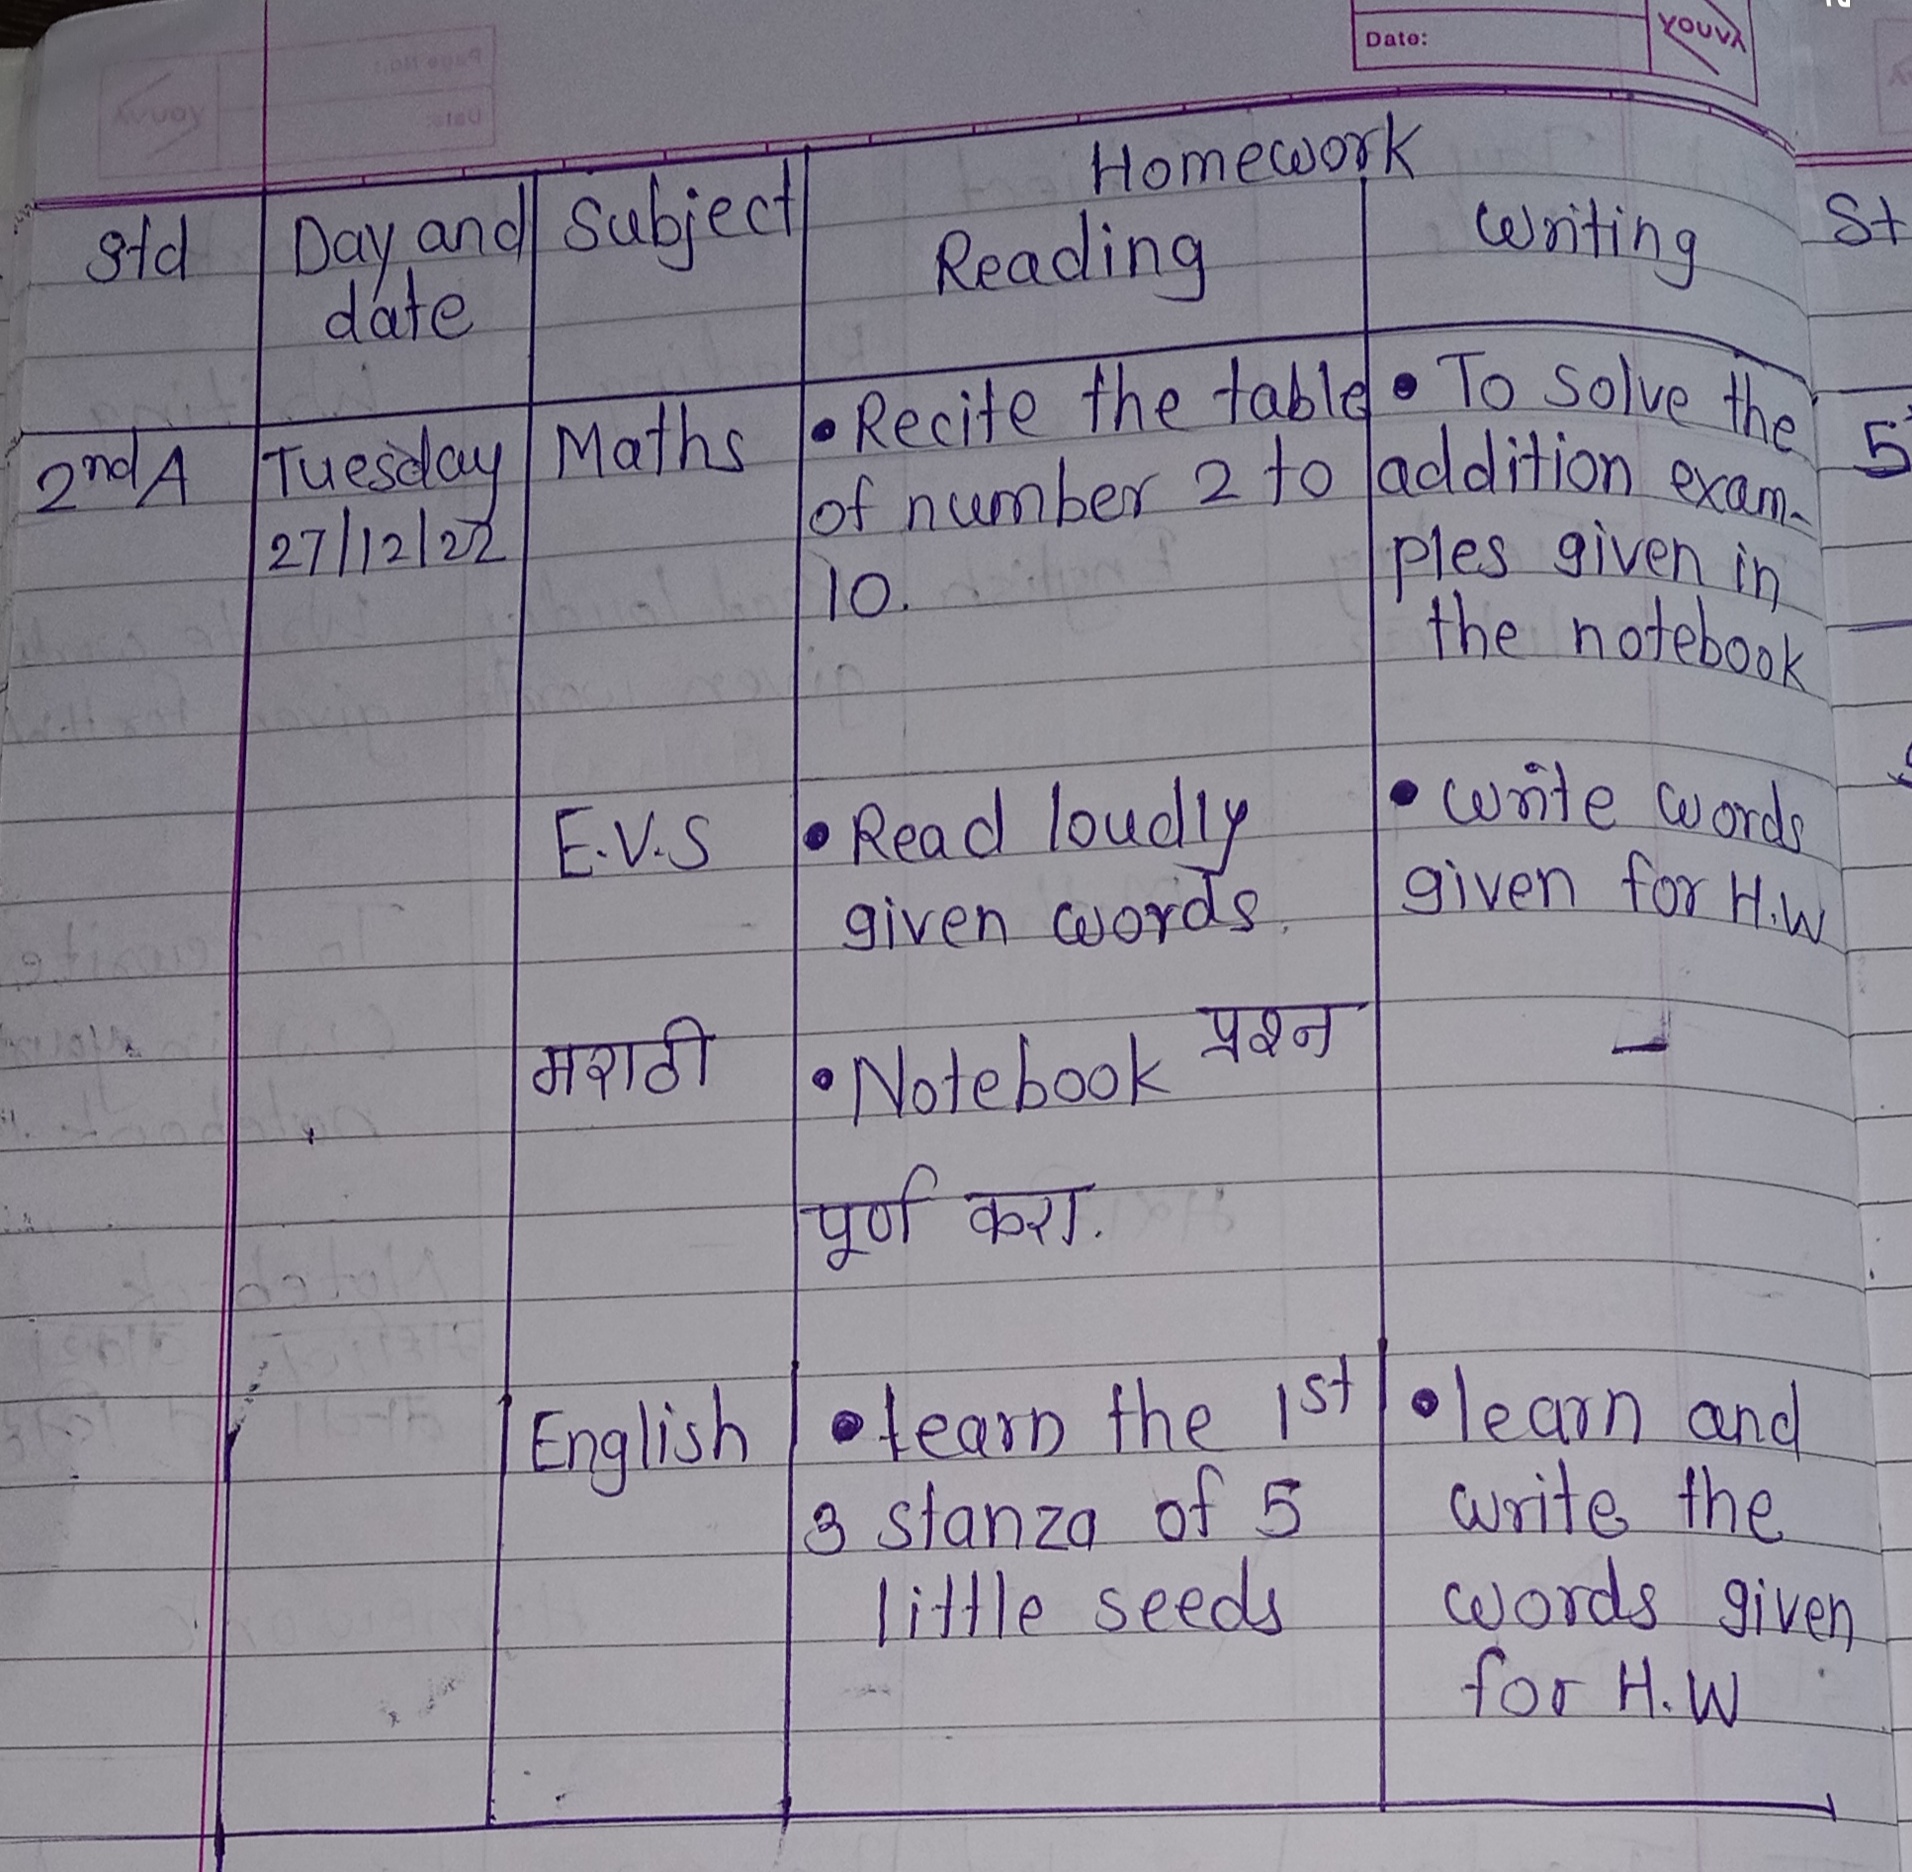 Date:
YOUVA
Homework
Std Day and Subject Reading Writing
date
2nd A Tuesday Maths • Recite the table • To solve the
27/12/22 of number 2 to addition exam-
10. ples given in
the notebook
E.V.S • Read loudly • write words
given words. given for H.W
मराठी • Notebook प्रश्न -
पूर्ण करा.
English • learn the 1st • learn and
3 stanza of 5 write the
little seeds words given
for H.W
St
5